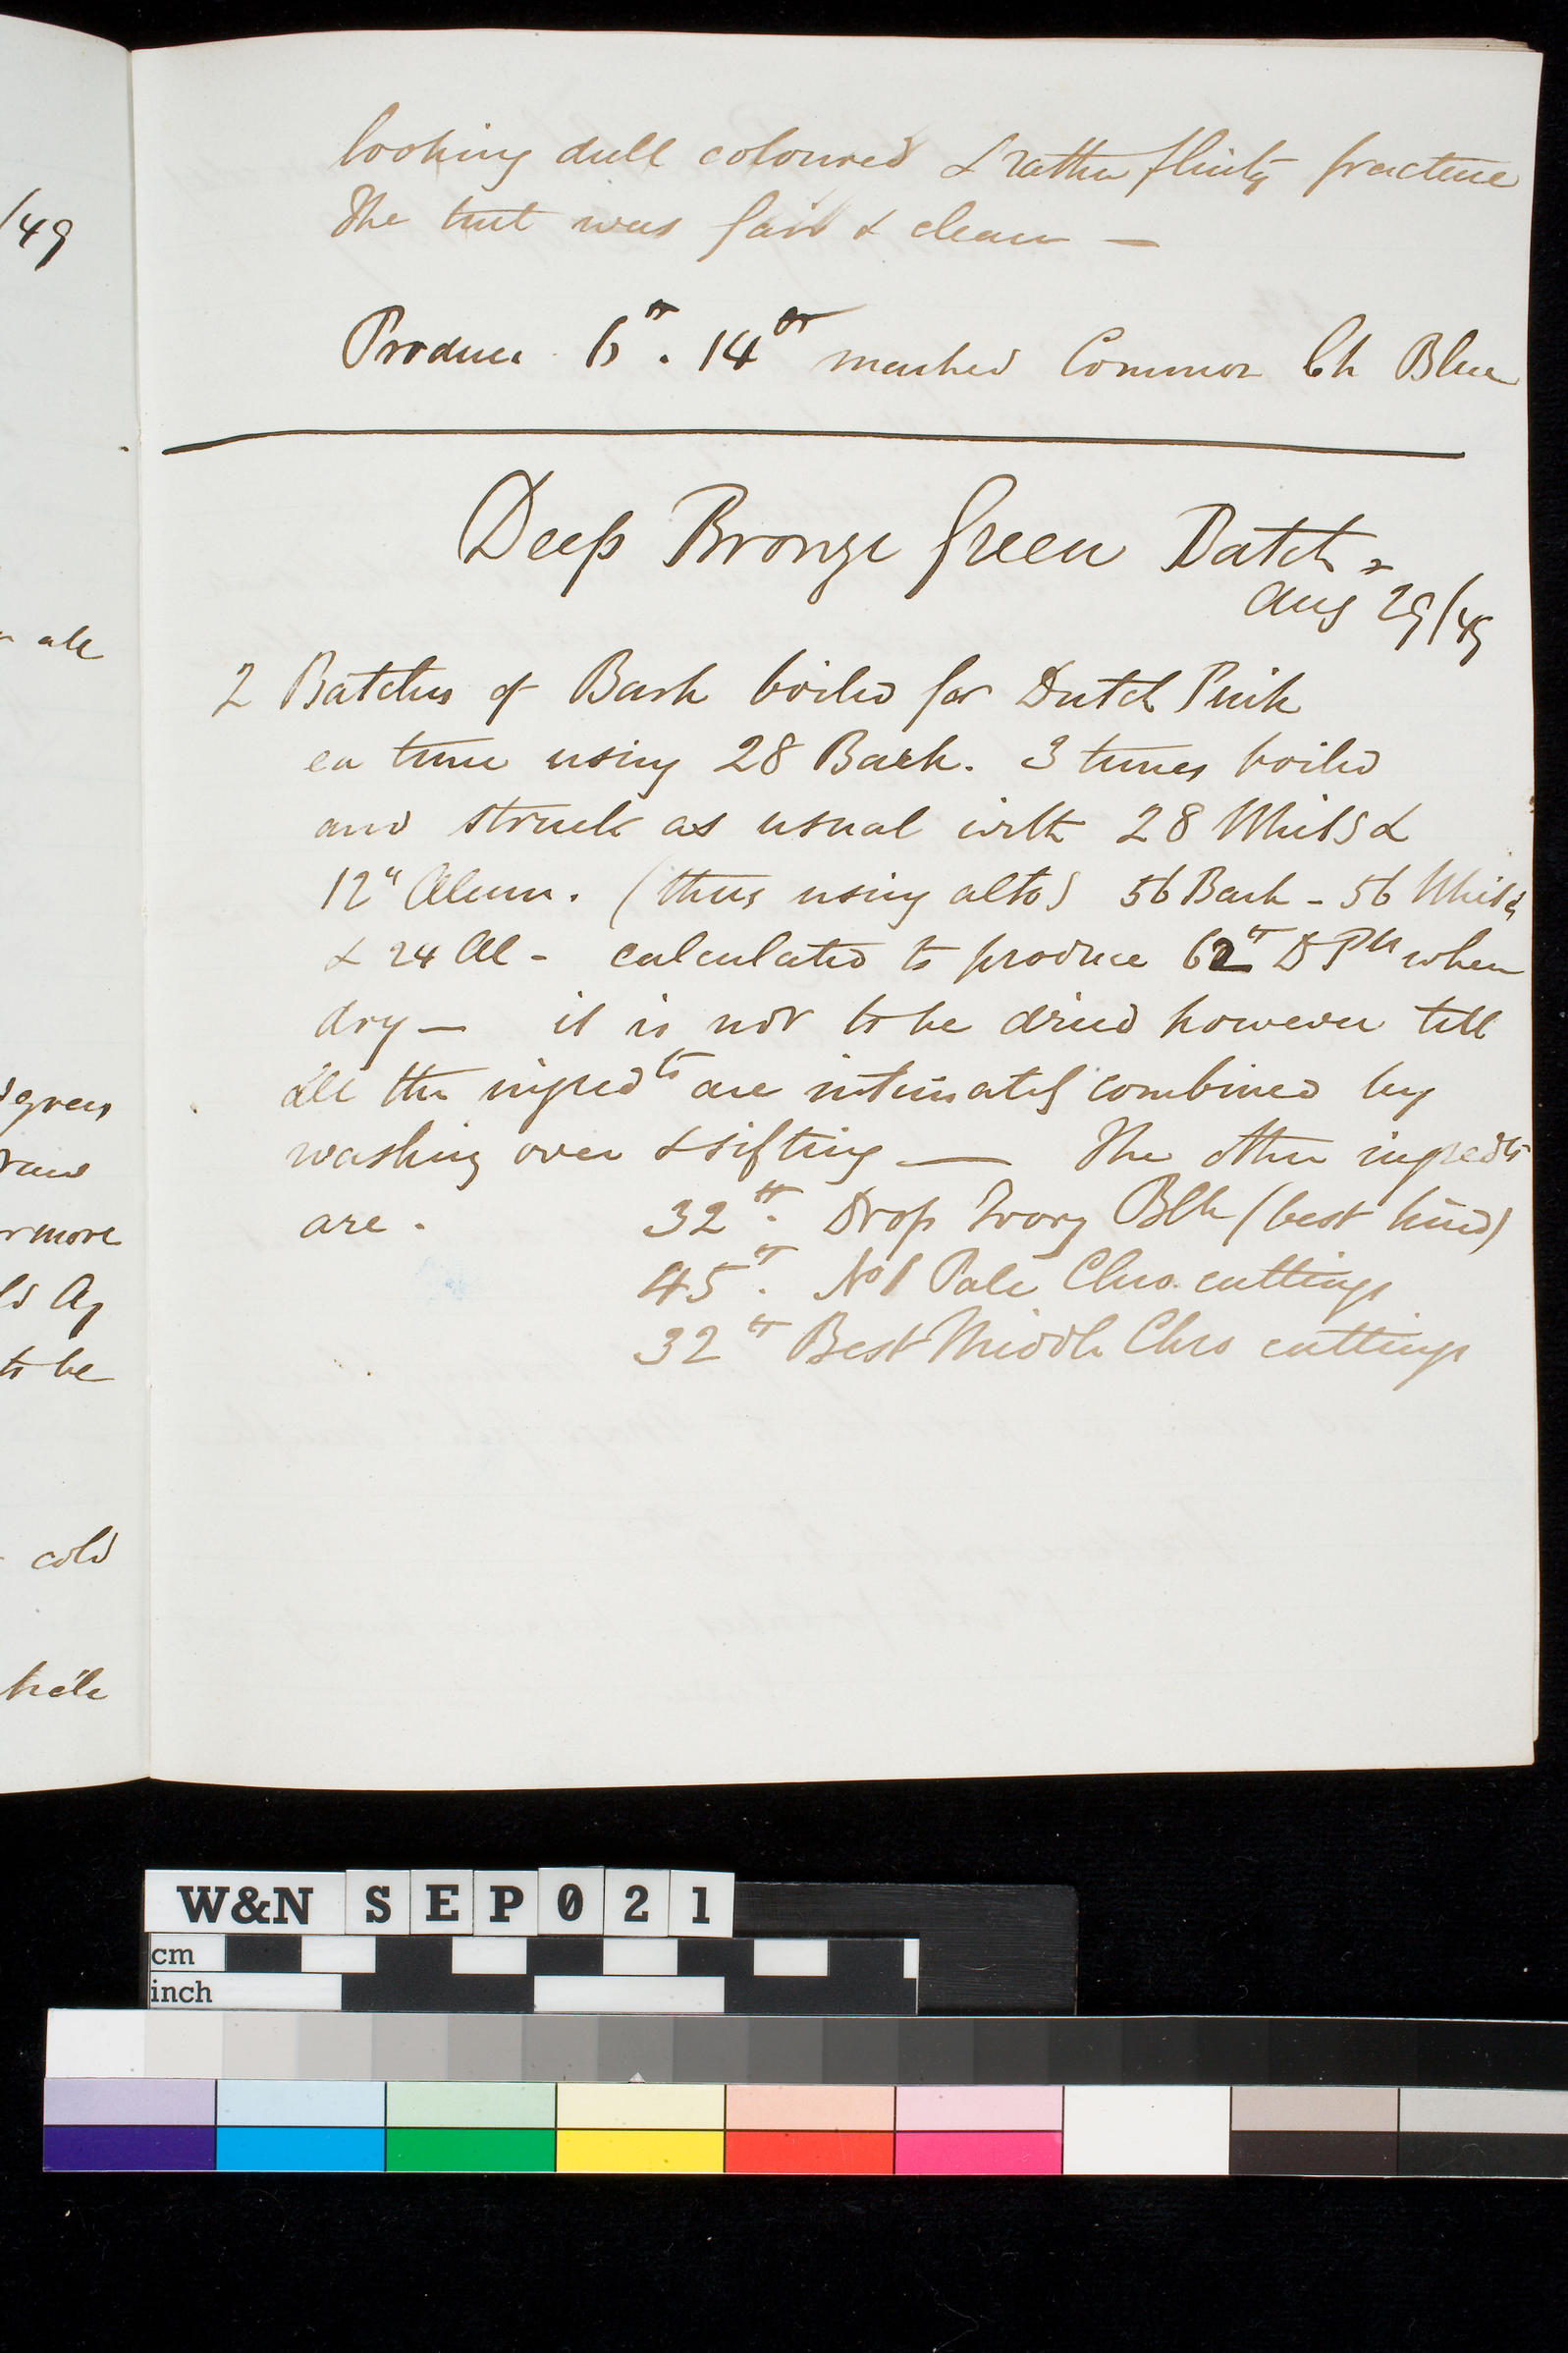 looking dull coloured & rather flinty fracture
The tint was fair & clean —
Produce 6 tt . 14 oz marked Common Ch Blue
Deep Bronze Green Batch 2
Aug 29/49
2 Batches of Bark boiled for Dutch Pink
ea time using 28 Bark. 3 times boiled
and struck as usual with 28 Whit &
12" Alum. (thus using altog) 56 Bark - 56 Whit
& 24 Al - calculated to produce 62 tt D Pk when
dry — it is not to be dried however till
all the ingredts are intimately combined by
washing over & sifting — The other ingredts
are . 32 tt . Drop Ivory Blk (best kind)
45 tt . No 1 Pale Chro. cuttings
32 tt Best Middle Chro cuttings
/49
all
greens
raw
rmore
ld Ag
to be
cold
W&N SEP021
cm
inch